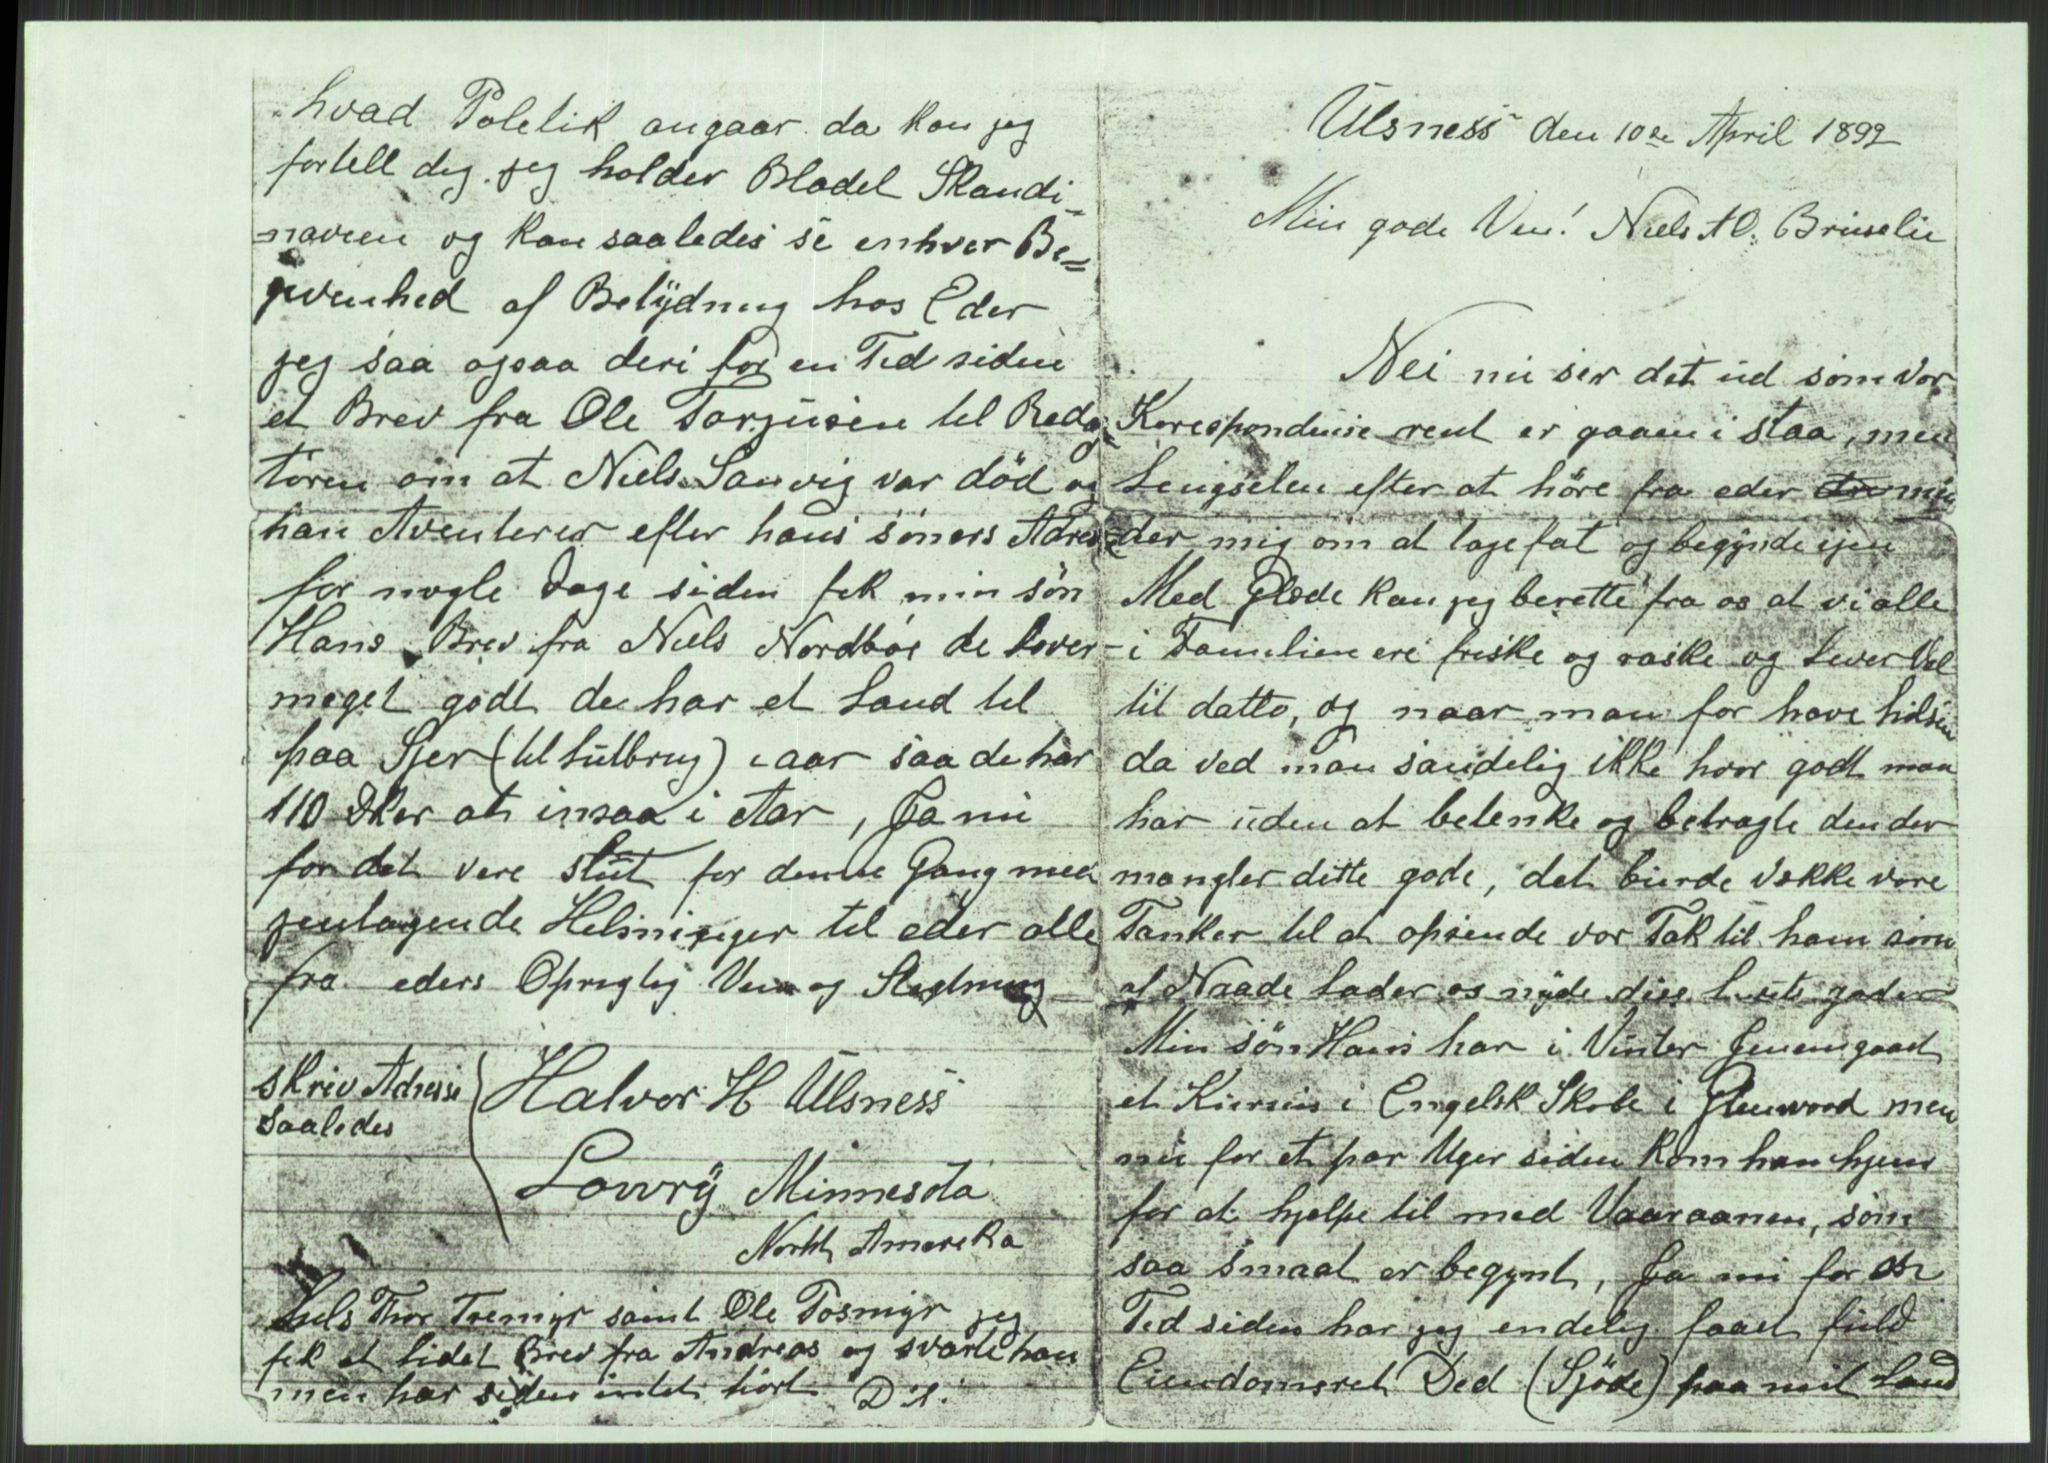 Ulsness den 10de April 1892
Min gode Ven! Niels A
Nei nu ser det ud som vor
Korespondense rent er gaaen i staa, men
Lengselen efter at höre fra eder min
der mig om at tage fat og begynde igen
Med Glæde kan jeg berette fra os at vi alle
i Familien ere friske og raske og lever Vel
til datto, og naar man for have hilsen
da ved man sandelig ikke hvor godt man
har uden at betenke og betragte den der
mangler dette gode, det burde vække vore
Tanker til at opsende vor Tak til ham som
af Naade lader os nyde disse goder
Min sön Hans har i Vinter Jenemgaaet
et Kursus i Engelsk Skole i Glenwood men
nu for et par Uger siden kom han hjem
for at hjelpe til med Vaaraanen, som
saa smaat er begynt, Ja nu for en
Tid siden har jeg endelig faaet fuld
Eiendomsret Ded (Sjöde) paa mit Land
hvad Poletik angaar da kan jeg
fortell dig jeg holder Bladet Skandi-
=navien og kan saaledes se enhver Be=
givenhed af Betydning hos Eder
jeg saa ogsaa deri for en Tid siden
et Brev fra Ole Torjusen til Redag
tören om at Niels Sanvig var död og
han Aventerer efter hans söners Adres
for nogle Dage siden fik min sön
Hans Brev fra Niels Nordböe de lever
meget godt de har et Land til
paa Sjer (til lutbrug) i aar saa de har
110 Eker at insaa i Aar, Ja nu
for det vere slut for denne Gang med
jentagende Helsninger til eder alle
fra eders Oprigtig Ven og Slegtning
skriv Adresse
saaledes
Halvor H Ulsness
Lowry Minnesota
North Amereka
Hels Thor Tremyr samt Ole Tosmyr jeg
fik et lidet Brev fra Andreas og svarte han
men har siden intet hört D.S.